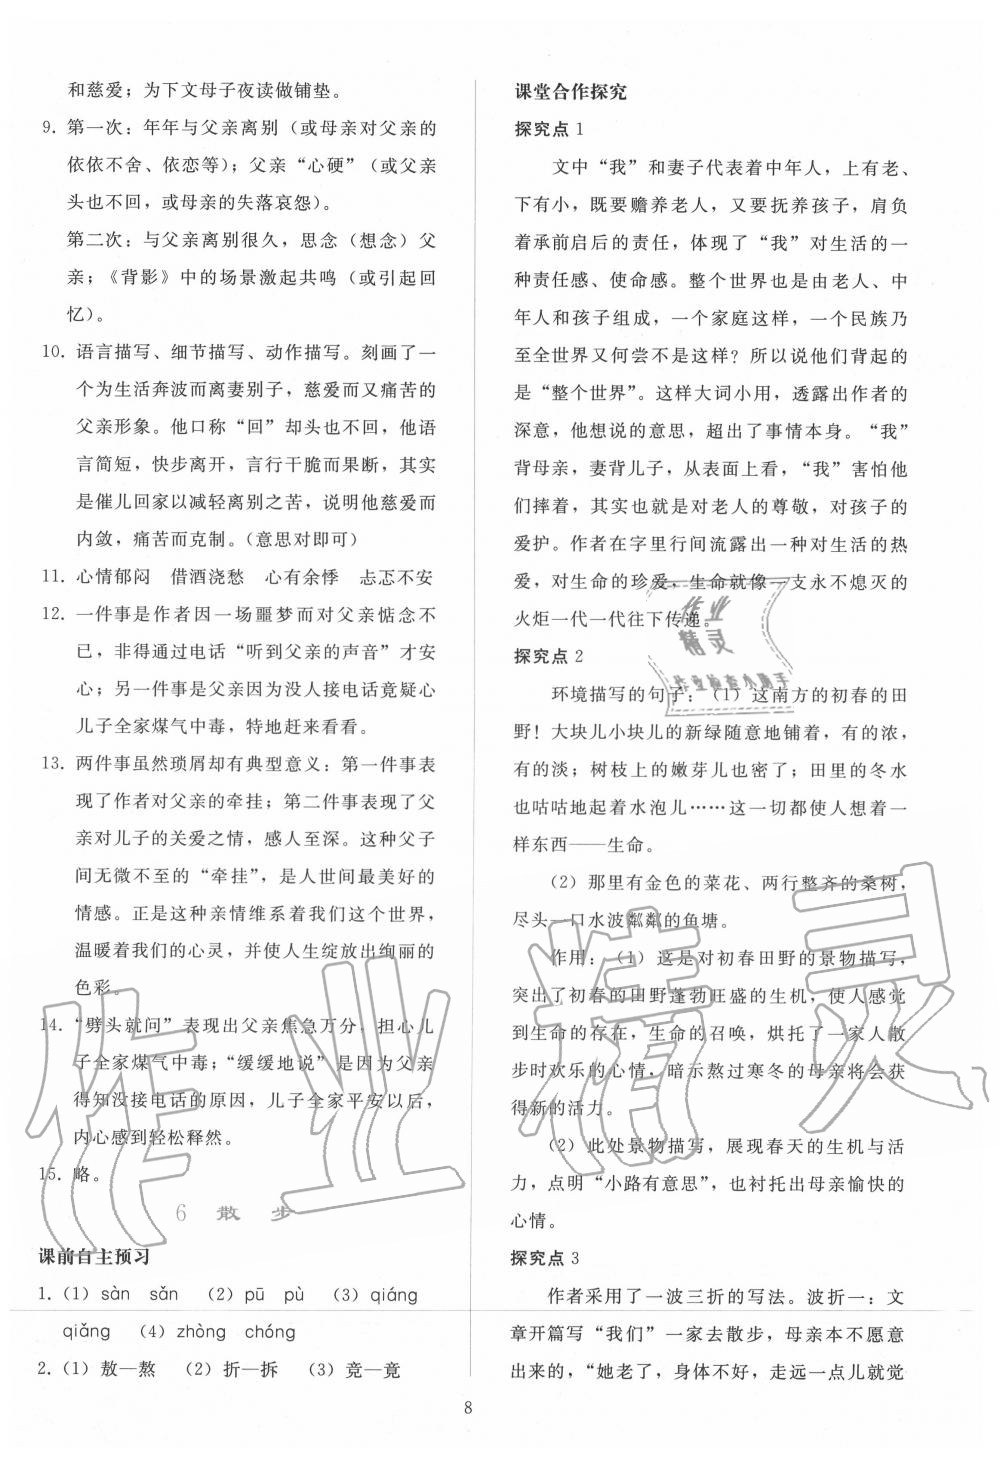 和慈爱；为下文母子夜读做铺垫。
9. 第一次：年年与父亲离别（或母亲对父亲的
依依不舍、依恋等）；父亲“心硬”（或父亲
头也不回，或母亲的失落哀怨）。
第二次：与父亲离别很久，思念（想念）父
亲；《背影》中的场景激起共鸣（或引起回
忆）。
10. 语言描写、细节描写、动作描写。刻画了一
个为生活奔波而离妻别子，慈爱而又痛苦的
父亲形象。他口称“回”却头也不回，他语
言简短，快步离开，言行干脆而果断，其实
是催儿回家以减轻离别之苦，说明他慈爱而
内敛，痛苦而克制。（意思对即可）
11. 心情郁闷 借酒浇愁 心有余悸 忐忑不安
12. 一件事是作者因一场噩梦而对父亲惦念不
已，非得通过电话“听到父亲的声音”才安
心；另一件事是父亲因为没人接电话竟疑心
儿子全家煤气中毒，特地赶来看看。
13. 两件事虽然琐屑却有典型意义：第一件事表
现了作者对父亲的牵挂；第二件事表现了父
亲对儿子的关爱之情，感人至深。这种父子
间无微不至的“牵挂”，是人世间最美好的
情感。正是这种亲情维系着我们这个世界，
温暖着我们的心灵，并使人生绽放出绚丽的
色彩。
14. “劈头就问”表现出父亲焦急万分，担心儿
子全家煤气中毒；“缓缓地说”是因为父亲
得知没接电话的原因，儿子全家平安以后，
内心感到轻松释然。
15. 略。
6 散 步
课前自主预习
1. （1）sàn sǎn （2）pū pù （3）qiáng
qiǎng （4）zhòng chóng
2. （1）敖—熬 （2）折—拆 （3）竞—竟
课堂合作探究
探究点 1
文中“我”和妻子代表着中年人，上有老、
下有小，既要赡养老人，又要抚养孩子，肩负
着承前启后的责任，体现了“我”对生活的一
种责任感、使命感。整个世界也是由老人、中
年人和孩子组成，一个家庭这样，一个民族乃
至全世界又何尝不是这样？所以说他们背起的
是“整个世界”。这样大词小用，透露出作者的
深意，他想说的意思，超出了事情本身。“我”
背母亲，妻背儿子，从表面上看，“我”害怕他
们摔着，其实也就是对老人的尊敬，对孩子的
爱护。作者在字里行间流露出一种对生活的热
爱，对生命的珍爱，生命就像一支永不熄灭的
火炬一代一代往下传递。
探究点 2
环境描写的句子：（1）这南方的初春的田
野！大块儿小块儿的新绿随意地铺着，有的浓，
有的淡；树枝上的嫩芽儿也密了；田里的冬水
也咕咕地起着水泡儿……这一切都使人想着一
样东西——生命。
（2）那里有金色的菜花、两行整齐的桑树，
尽头一口水波粼粼的鱼塘。
作用：（1）这是对初春田野的景物描写，
突出了初春的田野蓬勃旺盛的生机，使人感觉
到生命的存在，生命的召唤，烘托了一家人散
步时欢乐的心情，暗示熬过寒冬的母亲将会获
得新的活力。
（2）此处景物描写，展现春天的生机与活
力，点明“小路有意思”，也衬托出母亲愉快的
心情。
探究点 3
作者采用了一波三折的写法。波折一：文
章开篇写“我们”一家去散步，母亲本不愿意
出来的，“她老了，身体不好，走远一点儿就觉
8
作业精灵
作业
精灵
作业检查小助手